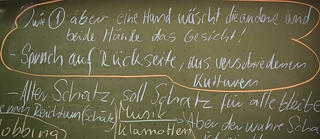 wie ① aber eine Hand wäscht die andere und
beide Hände das Gesicht!
- Spruch auf Rückseite, aus verschiedenen
Kulturen
- Alter Schatz, soll Schatz für alle bleibe
e nach Reichtum (Schatz) Musik
Klamotten Aber der wahre Scha
obbing